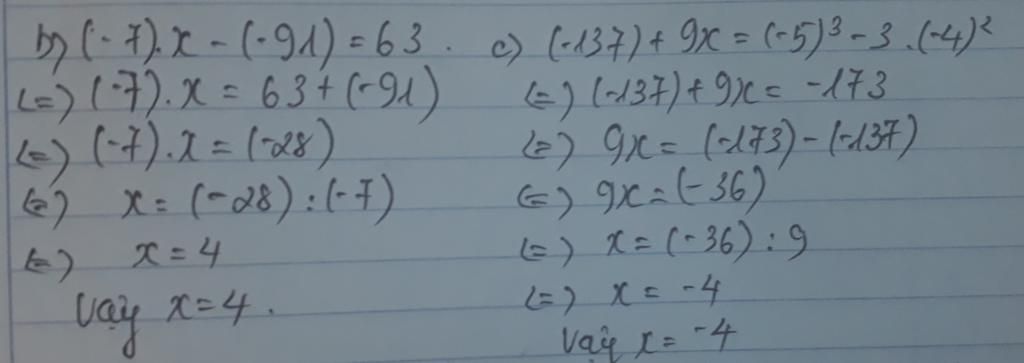 b) (-7).x - (-91) = 63.
(=) (-7).x = 63 + (-91)
(=) (-7).x = (-28)
(=) x = (-28) : (-7)
(=) x = 4
Vậy x = 4.
c) (-137) + 9x = (-5)³ - 3.(-4)²
(=) (-137) + 9x = -173
(=) 9x = (-173) - (-137)
(=) 9x = (-36)
(=) x = (-36) : 9
(=) x = -4
Vậy x = -4